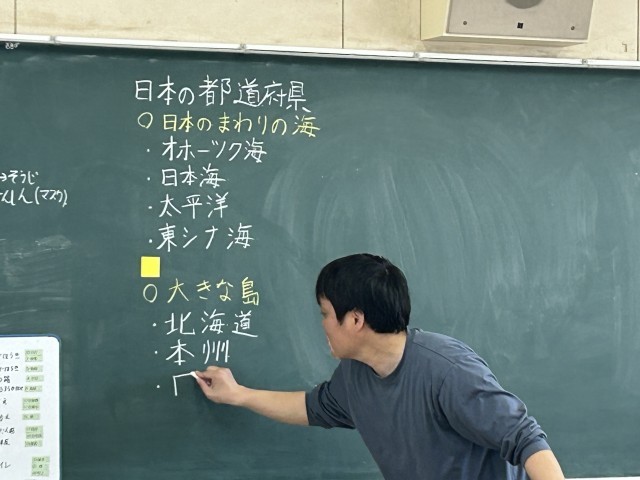 日本の都道府県
○日本のまわりの海
・オホーツク海
・日本海
・太平洋
・東シナ海
○大きな島
・北海道
・本州
・
→そうじ
けんしん(マスク)